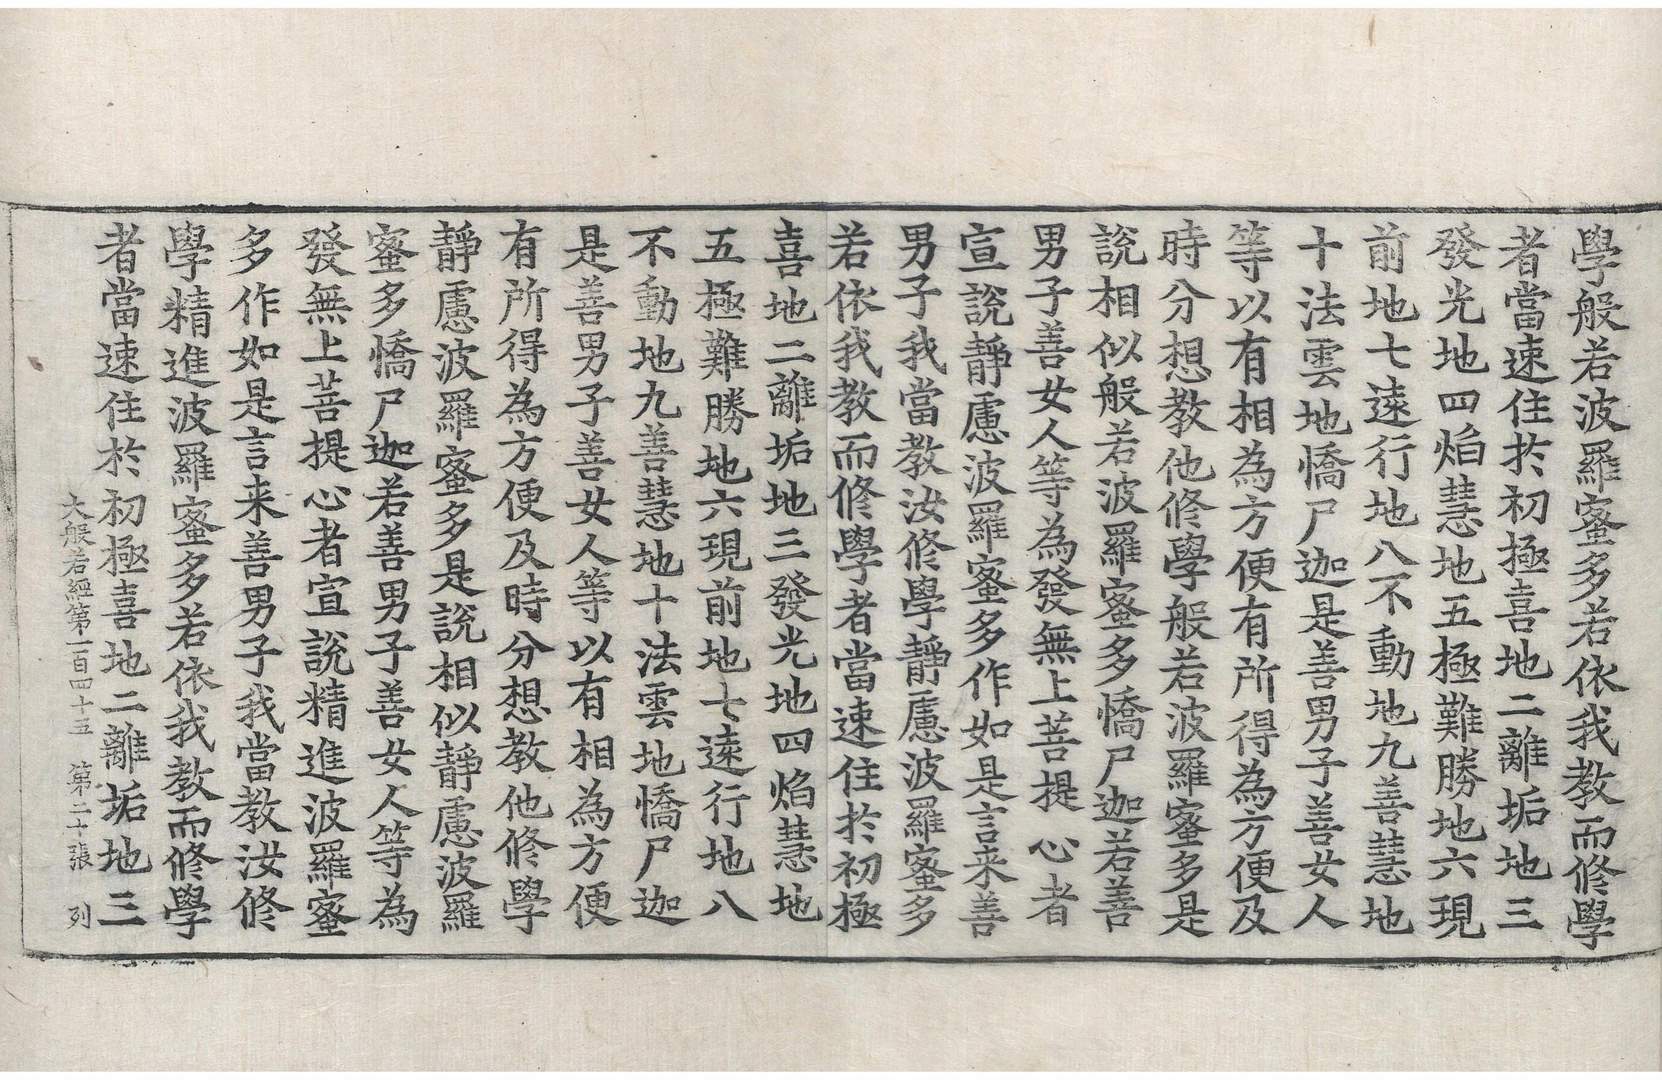 學般若波羅蜜多若依我教而修學
者當速住於初極喜地二離垢地三
發光地四焰慧地五極難勝地六現
前地七遠行地八不動地九善慧地
十法雲地憍尸迦是善男子善女人
等以有相為方便有所得為方便及
時分想教他修學般若波羅蜜多是
說相似般若波羅蜜多憍尸迦若善
男子善女人等為發無上菩提心者
宣說靜慮波羅蜜多作如是言来善
男子我當教汝修學靜慮波羅蜜多
若依我教而修學者當速住於初極
喜地二離垢地三發光地四焰慧地
五極難勝地六現前地七遠行地八
不動地九善慧地十法雲地憍尸迦
是善男子善女人等以有相為方便
有所得為方便及時分想教他修學
靜慮波羅蜜多是說相似靜慮波羅
蜜多憍尸迦若善男子善女人等為
發無上菩提心者宣說精進波羅蜜
多作如是言来善男子我當教汝修
學精進波羅蜜多若依我教而修學
者當速住於初極喜地二離垢地三
大般若經第一百四十五 第二十張 列